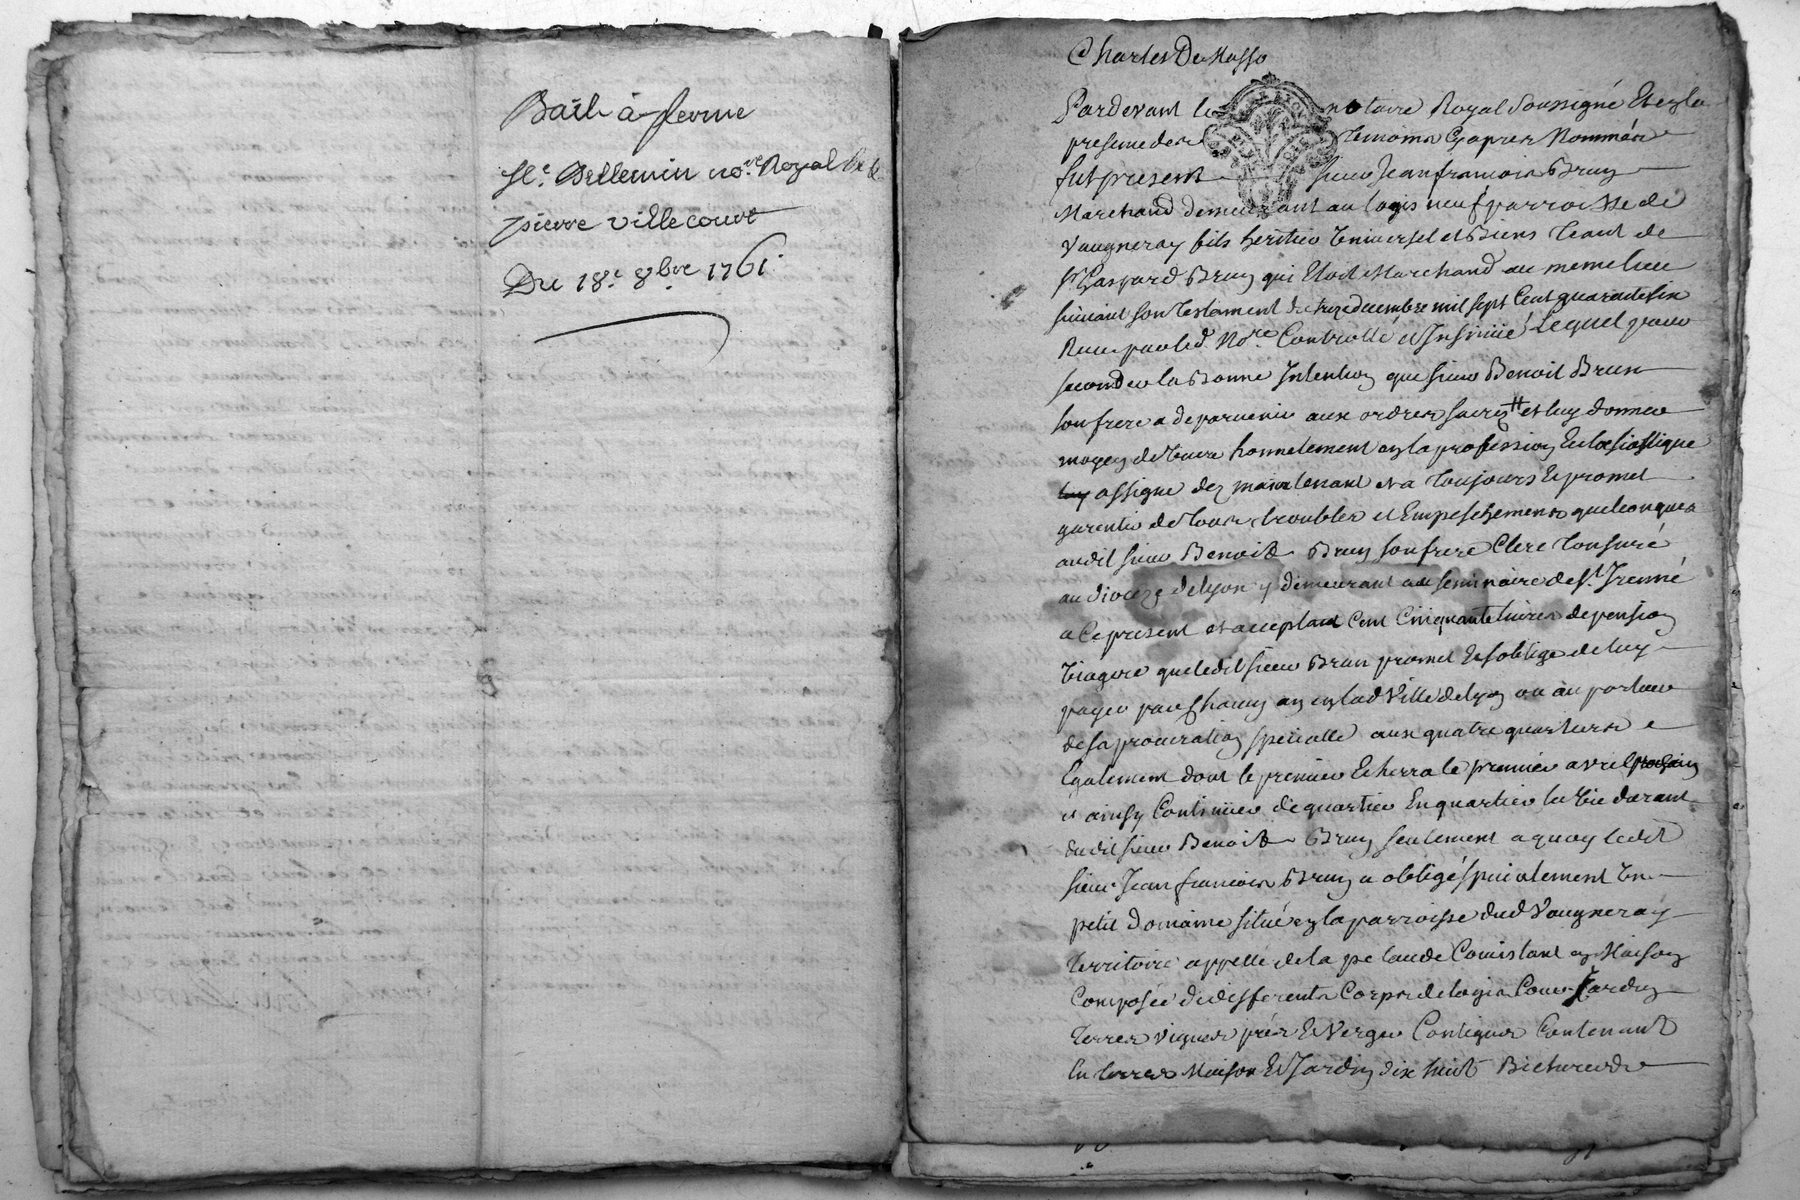 Bail à ferme
Sr. Bellemin nore. Royal &
pierre villecourt
Du 18e. 8bre 1761.
Charles De Masso
Pardevant le notaire Royal soussigné Et en la
presence des temoins Cy apres Nommés
fut present sieur Jean francois Brun
Marchand demeurant au logis neuf parroisse de
Vaugneray fils heritier universel et Biens tenant de
sr. Gaspard Brun qui Etoit Marchand au meme lieu
suivant son testament du treize decembre mil sept Cent quarante six
Receu par led. Nore. Controllé et Insinüé Lequel pour
seconder la Bonne Intention que sieur Benoit Brun
son frere a de parvenir aux ordres sacrés # et luy donner
moyen de vivre honnetement en la profession Eclesiastique
luy assigne dez maintenant et a toujours Et promet
garentir de tous troubles et Empeschements quelconques
audit sieur Benoit Brun son frere Clerc tonsuré
au dioceze de lyon y demeurant au seminaire de st. Irenné
a Ce present et acceptant Cent Cinquante livres de pension
viagere que ledit sieur Brun promet Et s'oblige de luy
payer par Chacun an en lad Ville de lyon ou au porteur
de sa procuration specialle aux quatre quartiers
Egalement dont le premier Echerra le premier avril prochain
et ainsy Continuer de quartier En quartier la vie durant
dudit sieur Benoit Brun seulement a quoy ledit
sieur Jean francois Brun a obligé specialement un
petit domaine situé en la parroisse dud Vaugneray
territoire appellé de la pelaude Consistant en Maison
Composée de differents Corps de logis Cour Jardin
terres vignes prés Et Verger Contigus Contenant
En terres Maison Et Jardin dix huit Bicherées